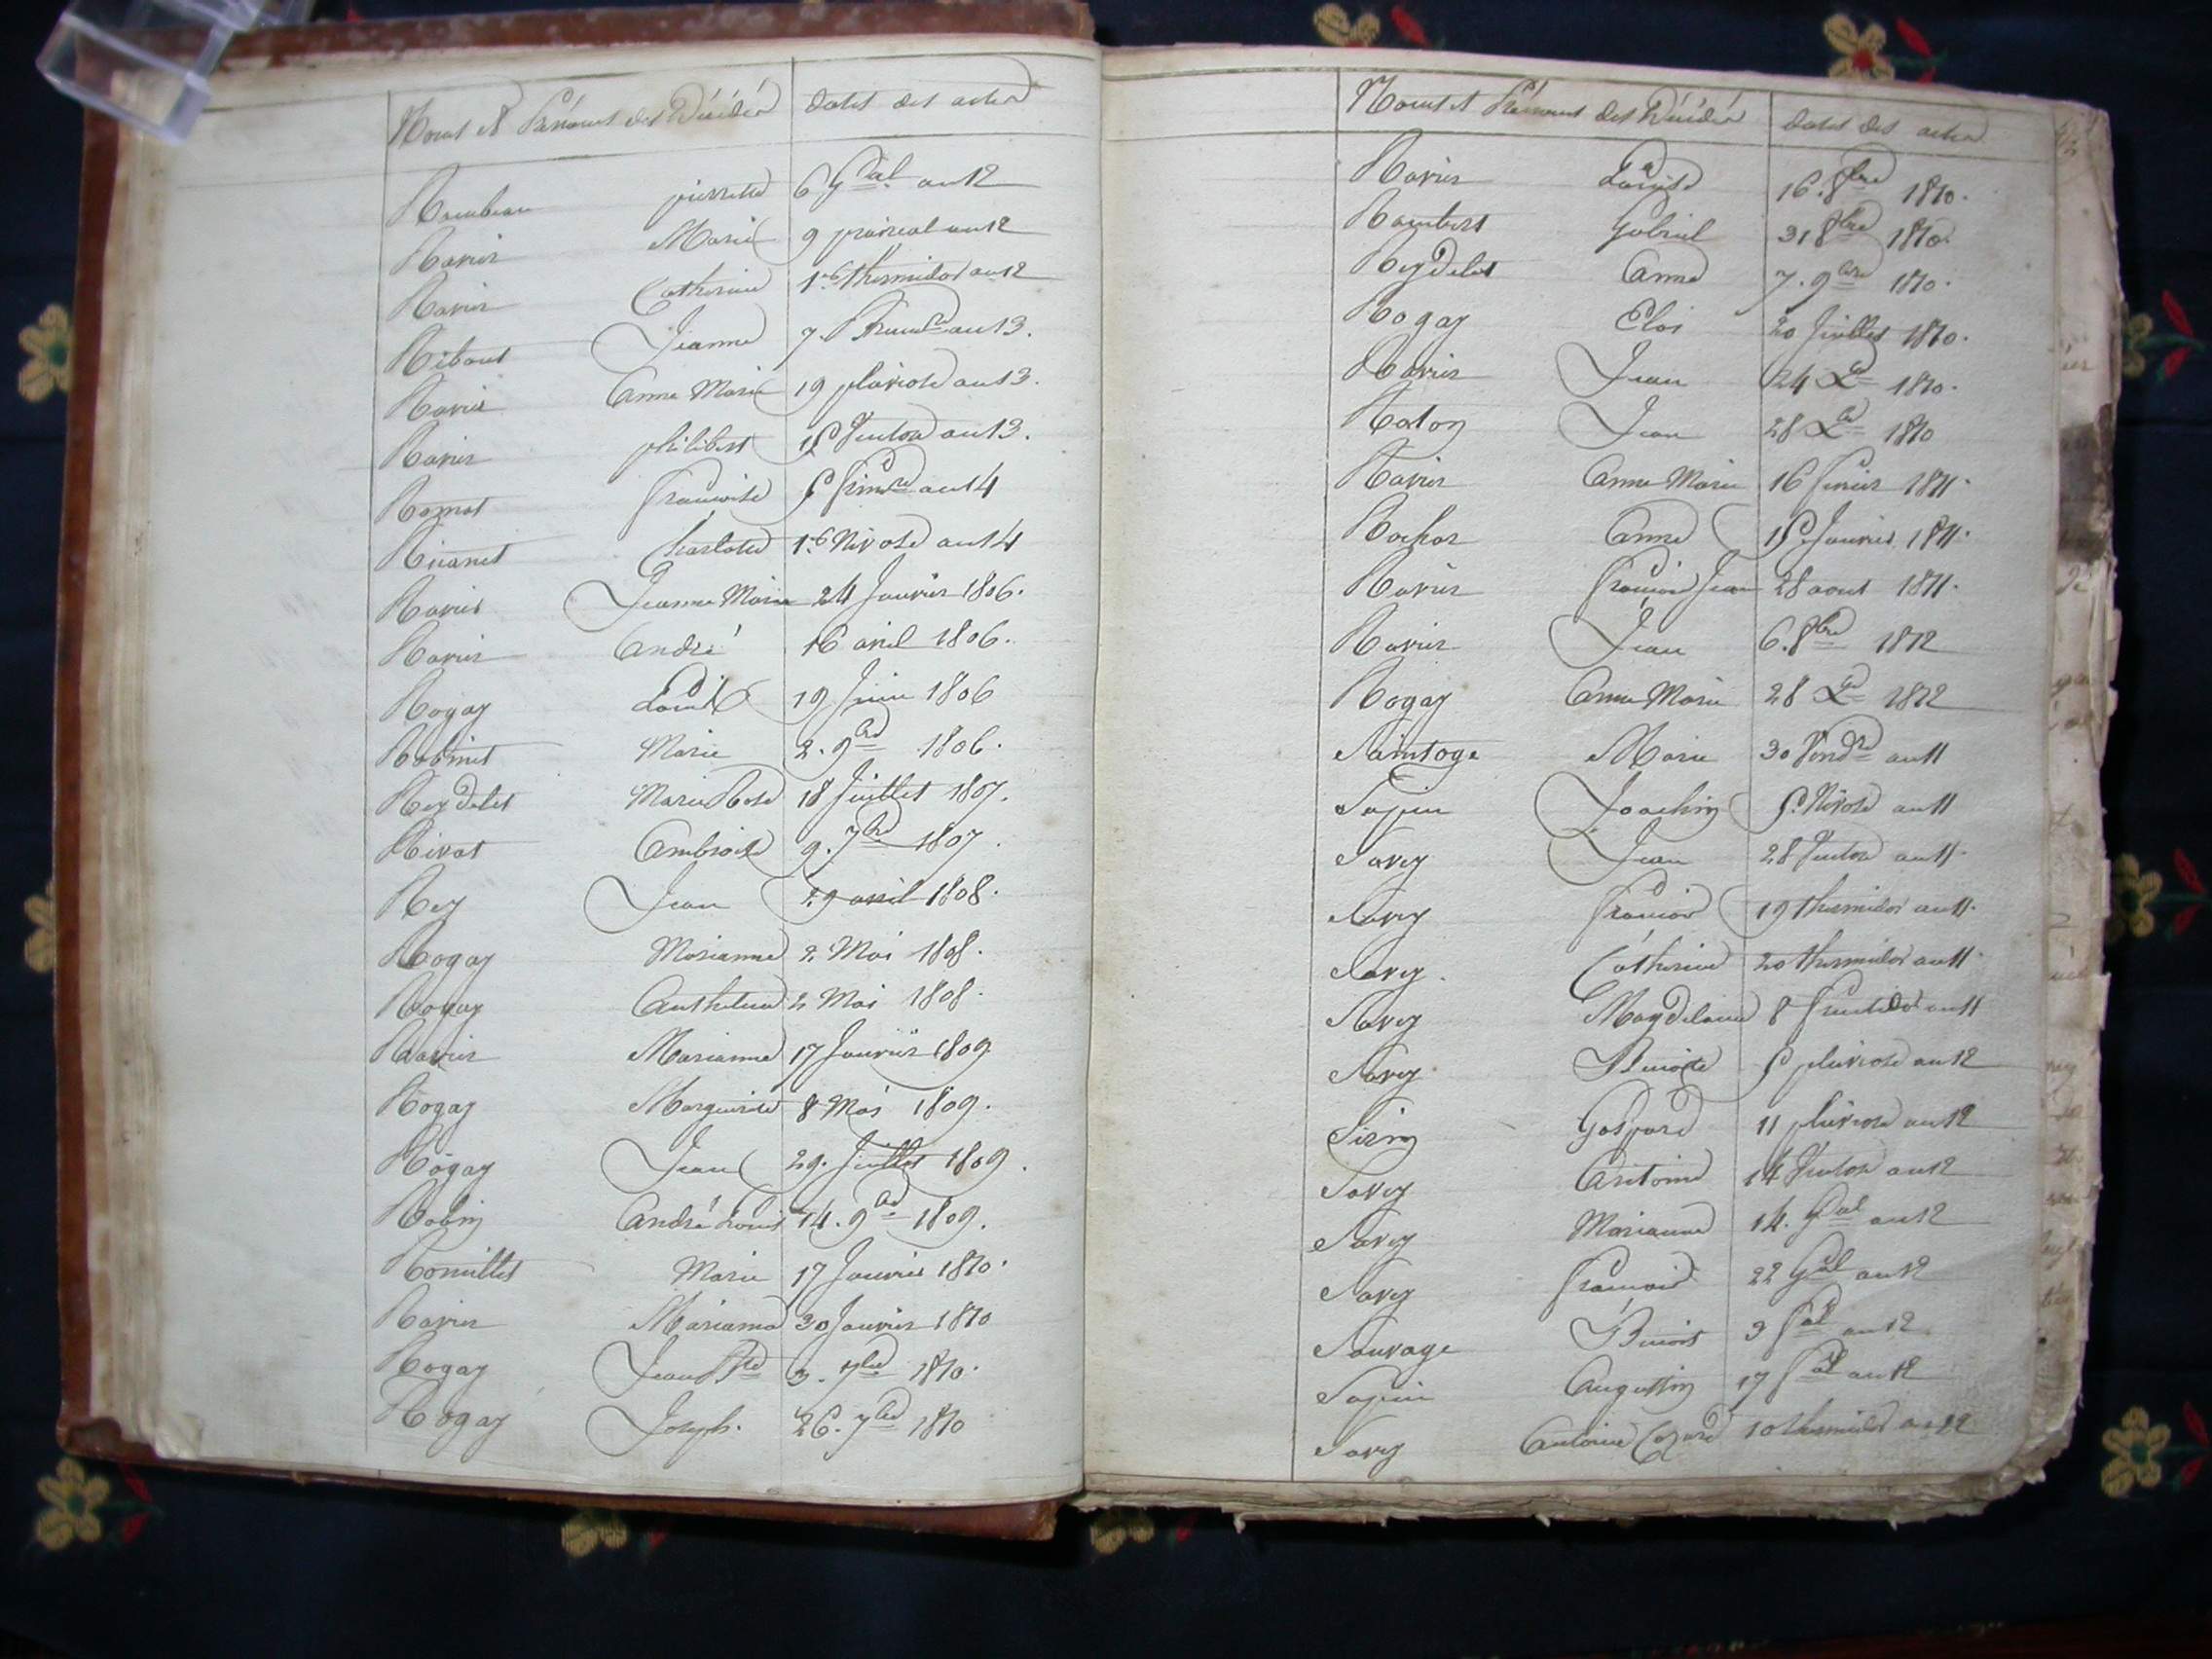 Noms et Prénoms des Décédés dates des actes
Rambeau pierrette 6 Gal. an 12
Ravier Marie 9 prairial an 12
Ravier Catherine 1er thermidor an 12
Ribout Jeanne 7. Brumre an 13.
Ravier Anne Marie 19 pluviose an 13.
Ravier philibert 15 Ventose an 13.
Ramat Francoise 5 frimre an 14
Charlotte 1er Nivose an 14
Ravier Jeanne Marie 24 Janvier 1806.
Ravier André 16 avril 1806.
Rogay Louis 19 Juin 1806
Robinet Marie 2. 9bre 1806.
Reydelet Marie Rose 18 Juillet 1807.
Rivat Ambroise 9. 7bre 1807.
Rey Jean 29 avril 1808.
Rogay Marianne 2 Mai 1808.
Rogay Anthelme 2 Mai 1808.
Ravier Marianne 17 Janvier 1809
Rogay Marguerite 8 Mai 1809.
Rogay Jean 29. Juillet 1809.
Robin André Louis 14. 9bre 1809.
Romillet Marie 17 Janvier 1810.
Ravier Marianne 30 Janvier 1810
Rogay Jean Bte 3. 7bre 1810.
Rogay Joseph. 26. 7bre 1810
Noms et Prénoms des Décédés dates des actes
Ravier Louise 16. 8bre 1810.
Rambert Gabriel 31 8bre 1810.
Reydelet Anne 7. 9bre 1810.
Rogay Eloi 20 Juillet 1810.
Ravier Jean 24 Xbre 1810.
Raton Jean 28 Xbre 1810
Ravier Anne Marie 16 fevrier 1811.
Rochas Anne 15 Janvier 1811.
Ravier Francois Jean 28 aout 1811.
Ravier Jean 6. 8bre 1812
Rogay Anne Marie 28 Xbre 1812
Saintoge Marie 30 Vendre an 11
Sapin Joachim 5. Nivose an 11
Savey Jean 28 Ventose an 11.
Savey Francois 19 thermidor an 11.
Savey. Catherine 20 thermidor an 11.
Savey Magdelaine 8 fructidor an 11
Savey Benoite 5 pluviose an 12
Gaspard 11 pluviose an 12
Savey Antoine 14 Ventose an 12
Savey Marianne 14. Gal an 12
Savey Francois 22 Gal an 12
Sauvage Benoit 3 fal an 12
Sapin Augustin 17 fal an 12
Savey Antoine Cezard 10 thermidor an 12